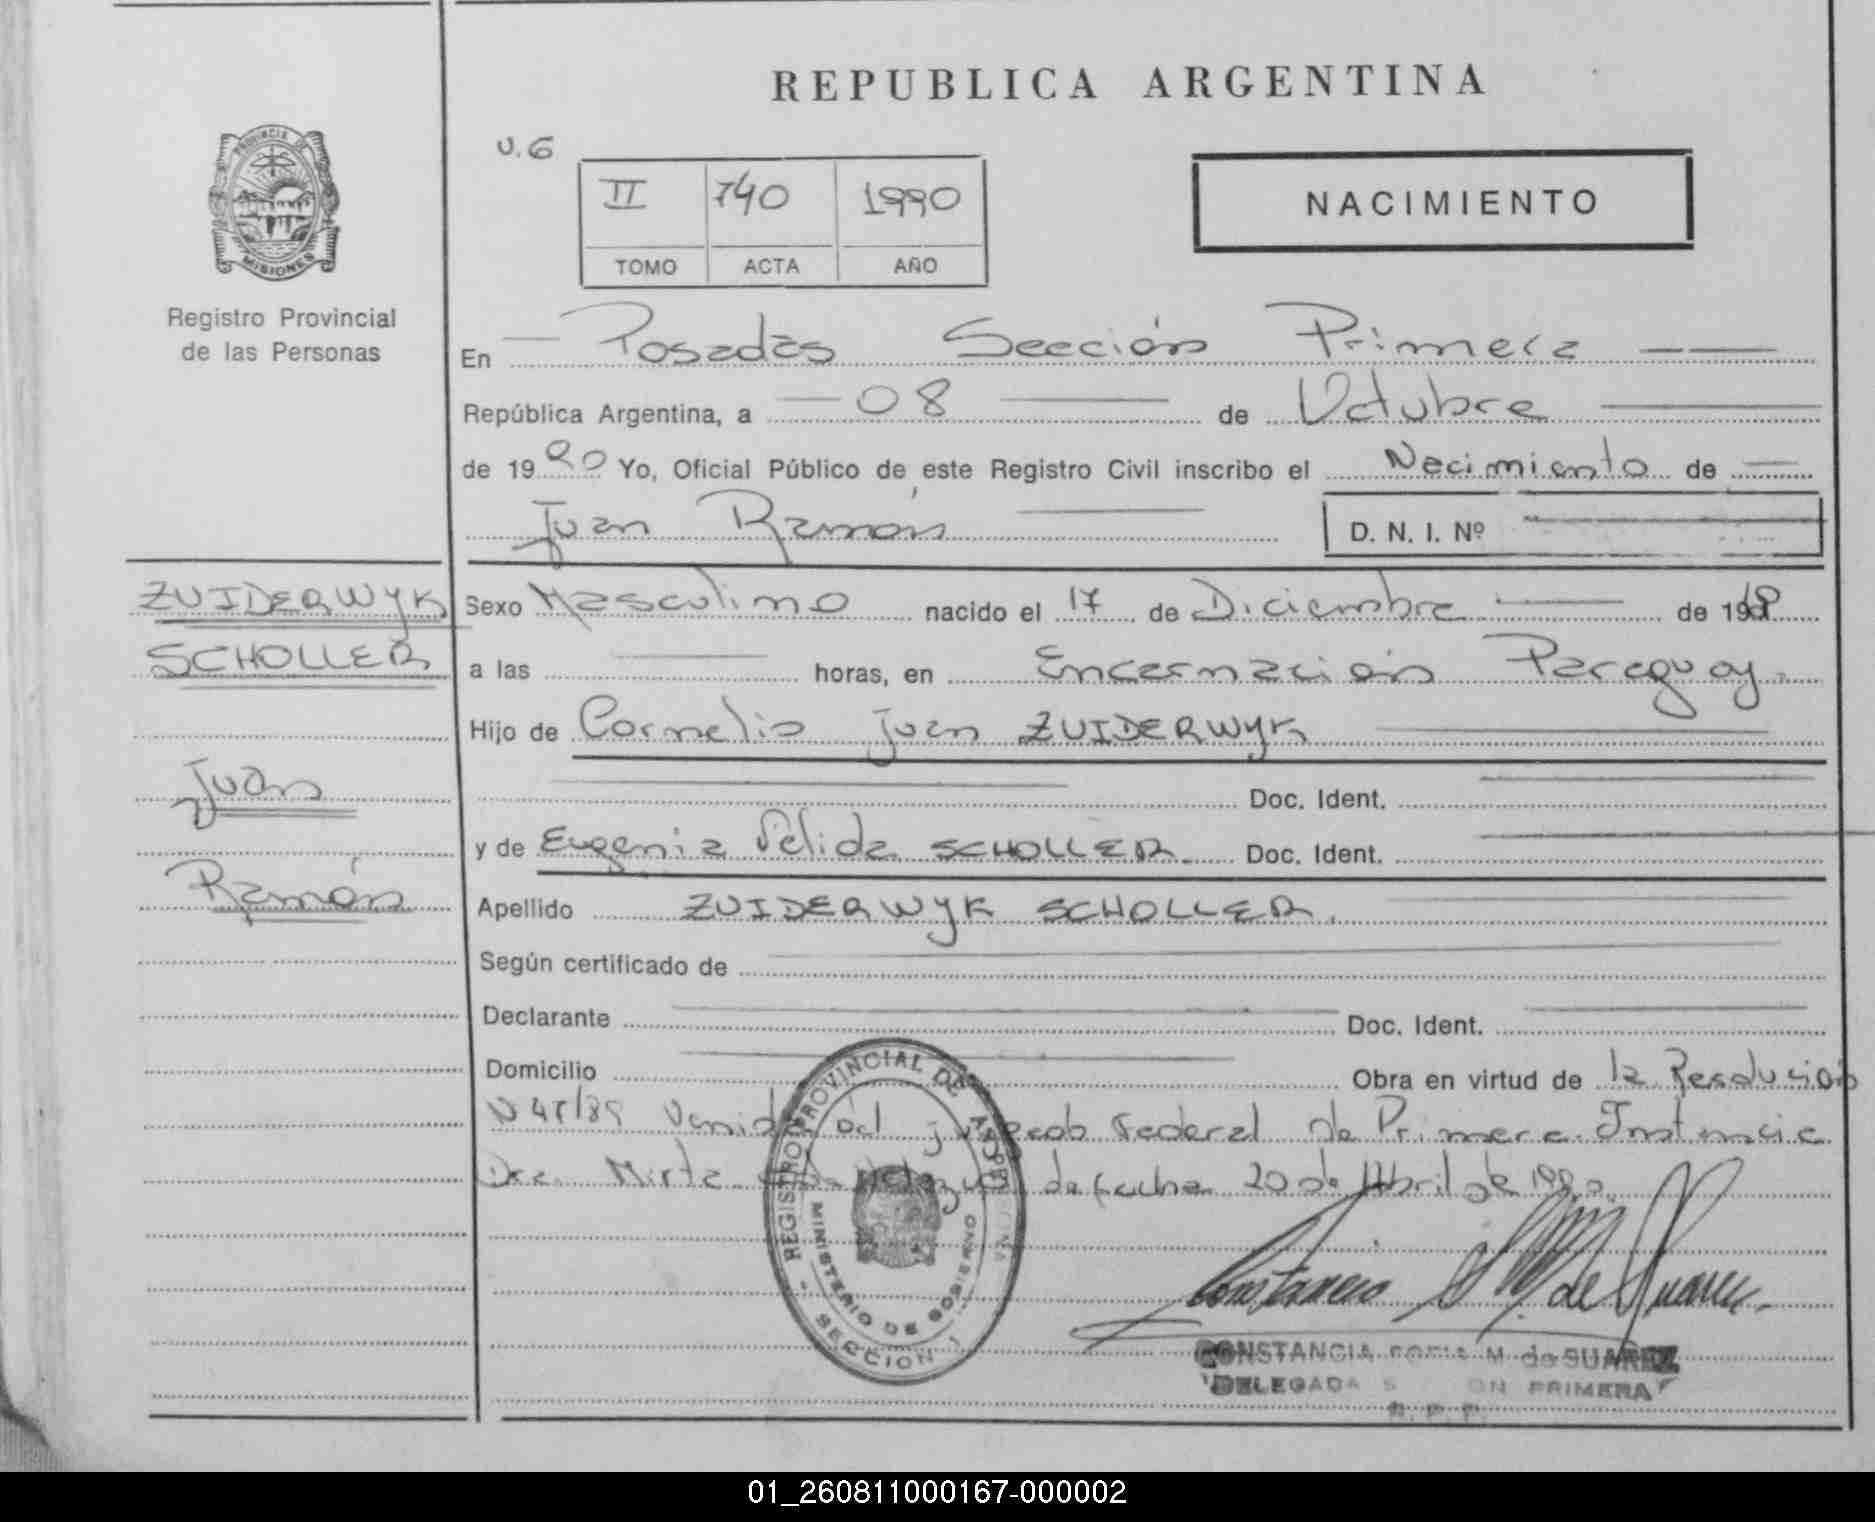 REPUBLICA ARGENTINA
PROVINCIA DE
MISIONES
Registro Provincial
de las Personas
U.6
II 740 1990
TOMO ACTA AÑO
NACIMIENTO
En Posadas Sección Primera
República Argentina, a 08 de Octubre
de 1990 Yo, Oficial Público de este Registro Civil inscribo el Nacimiento de
Juan Ramón
D. N. I. Nº
ZUIDERWYK
SCHOLLER
Juan
Ramón
Sexo Masculino nacido el 17 de Diciembre de 19
a las horas, en Encarnación Paraguay.
Hijo de Cornelio Juan ZUIDERWYK
Doc. Ident.
y de Eugenia Felida SCHOLLER. Doc. Ident.
Apellido ZUIDERWYK SCHOLLER.
Según certificado de
Declarante Doc. Ident.
Domicilio Obra en virtud de la Resolución
Venida del juzgado Federal de Primera Instancia
Dra. Mirta de fecha 20 de Abril de
REGISTRO PROVINCIAL DE
MINISTERIO DE GOBIERNO
SECCION 1
Constancia de Suarez
CONSTANCIA SOFIA M. de SUAREZ
DELEGADA PRIMERA
R. P. P.
01_260811000167-000002